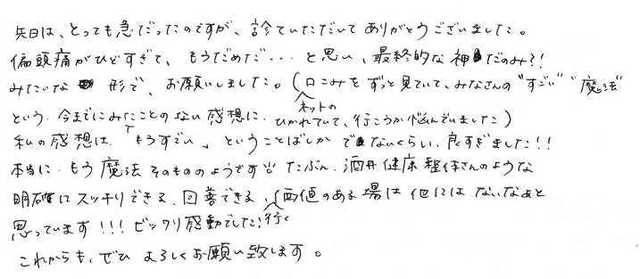 先日は、とっても急だったのですが、診ていただいてありがとうございました。
偏頭痛がひどすぎて、もうだめだ... と思い、最終的な神だのみ?!
みたいな 形で、お願いしました。(口こみをずっと見ていて、みなさんの "すごい" "魔法"
という 今までにみたことのない感想に、ネットの ひかれていて、行こうか悩んでいました)
私の感想は「もうすごい」ということばしか でないくらい、良すぎました!!
本当に もう 魔法 そのもののようです たぶん、酒井健康整体さんのような
明確にスッキリできる、回善できる、行く (価値のある 場は 他にはないなぁと
思っています!!! ビックリ感動でした
これからも、ぜひ よろしくお願い致します。